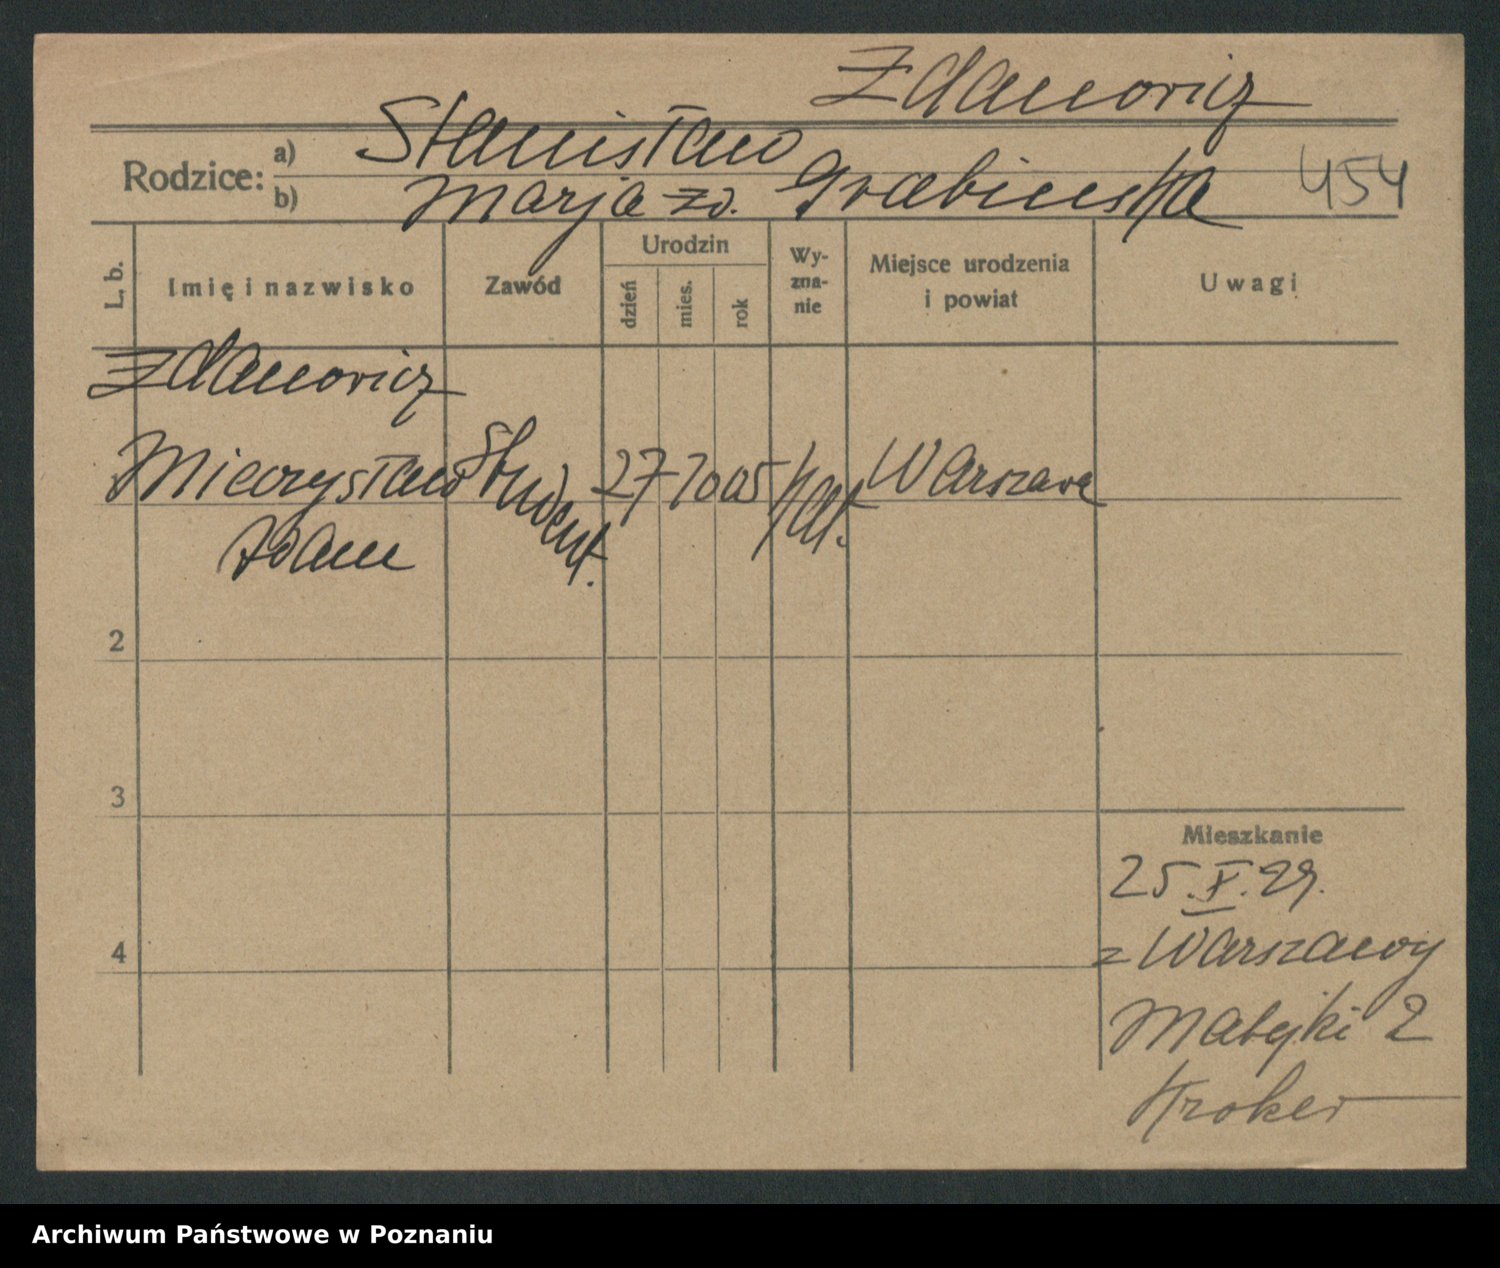 Zdanowicz
Rodzice: a) Stanisław
b) Marja zd. Grabieńska 454
L. b. Imię i nazwisko Zawód Urodzin dzień mies. rok Wyzna-nie Miejsce urodzenia i powiat Uwagi
Zdanowicz
Mieczysław Student. 27 7 05 kat. Warszawa
Adam
2
3
Mieszkanie
25.X.29.
4 z Warszawy
Matejki 2
Kroker
Archiwum Państwowe w Poznaniu